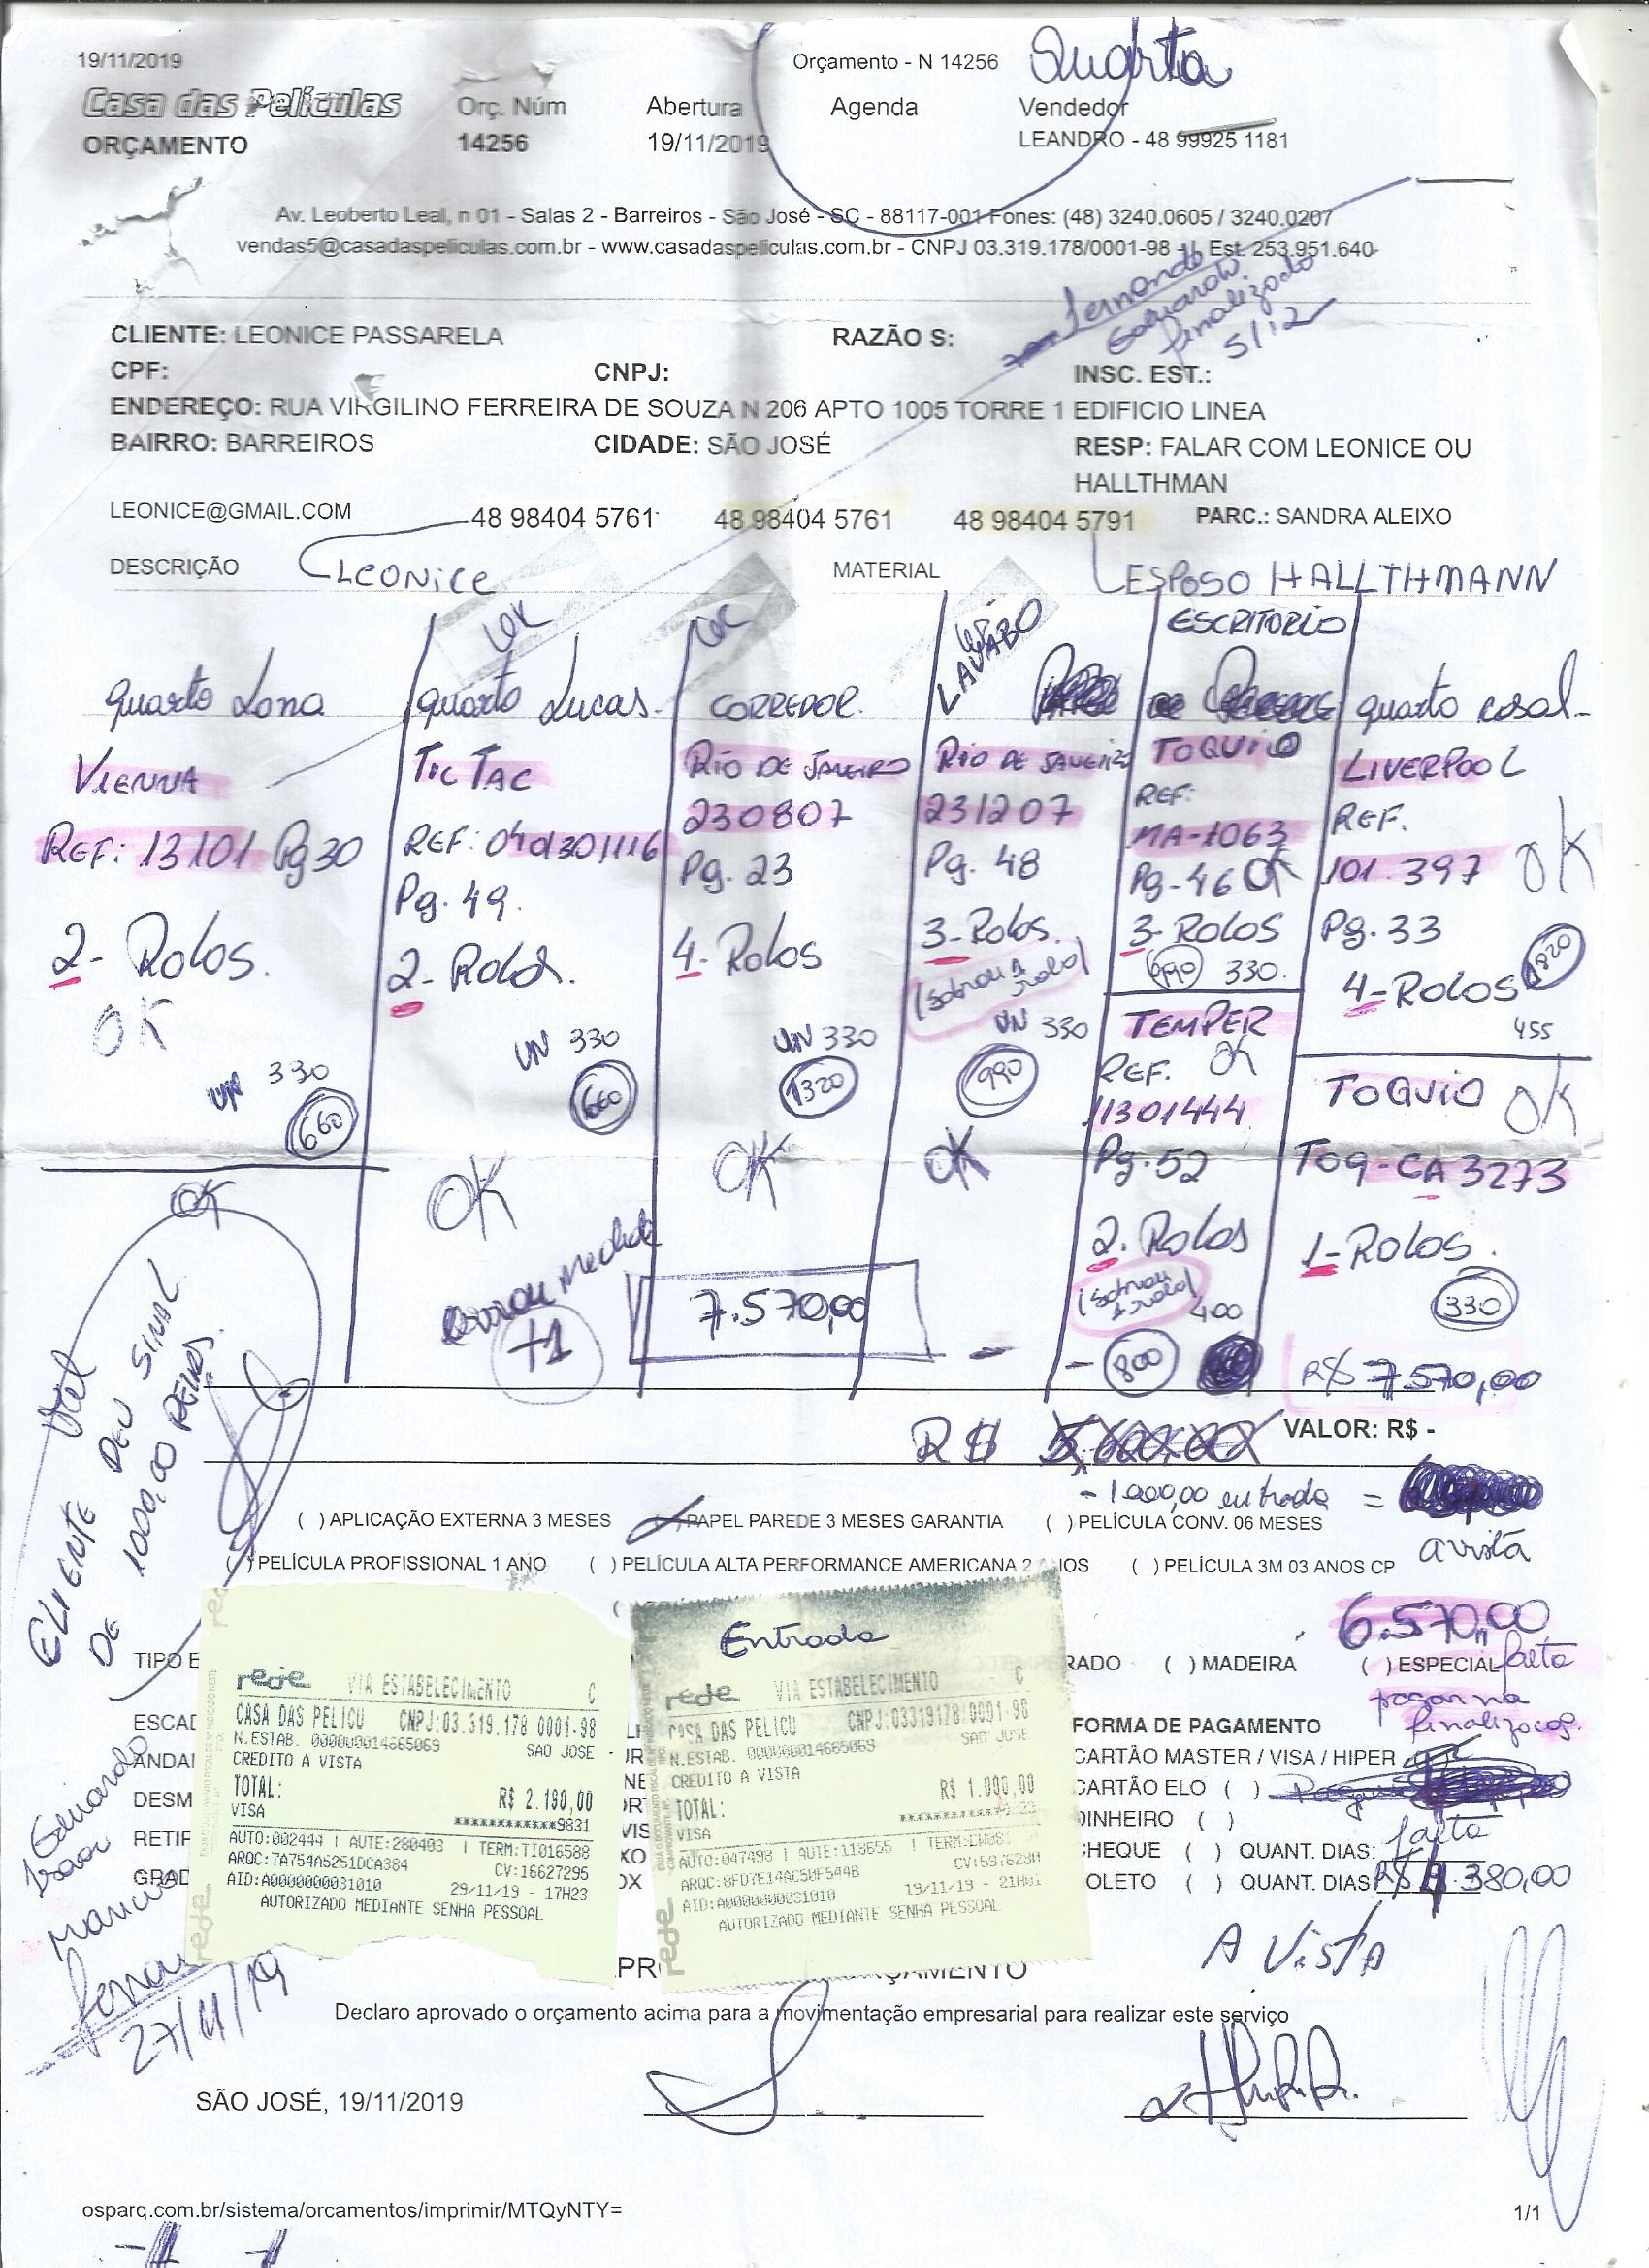 19/11/2019
Orçamento - N 14256
Quarta
Casa das Películas
Orç. Núm
Abertura
Agenda
Vendedor
ORÇAMENTO
14256
19/11/2019
LEANDRO - 48 99925 1181
Av. Leoberto Leal, n 01 - Salas 2 - Barreiros - São José - SC - 88117-001 Fones: (48) 3240.0605 / 3240.0207
vendas5@casadaspeliculas.com.br - www.casadaspeliculas.com.br - CNPJ 03.319.178/0001-98 - I. Est. 253.951.640-
Fernando
Eduardo
finalizado
5/12
CLIENTE: LEONICE PASSARELA
RAZÃO S:
CPF:
CNPJ:
INSC. EST.:
ENDEREÇO: RUA VIRGILINO FERREIRA DE SOUZA N 206 APTO 1005 TORRE 1 EDIFICIO LINEA
BAIRRO: BARREIROS
CIDADE: SÃO JOSÉ
RESP: FALAR COM LEONICE OU
HALLTHMAN
LEONICE@GMAIL.COM
48 98404 5761
48 98404 5761
48 98404 5791
PARC.: SANDRA ALEIXO
DESCRIÇÃO
LEONICE
MATERIAL
ESPOSO HALLTHMANN
quarto Lana
VIENNA
REF: 13101 Pg 30
2- Rolos.
OK
UN 330
660
OK
OK
quarto Lucas
TIC TAC
REF: 0401301116
Pg. 49.
2- Rolos.
UN 330
660
OK
errou medida
+1
OK
CORREDOR.
RIO DE JANEIRO
230807
Pg. 23
4- Rolos
UN 330
1320
OK
7.570,00
LAVABO
RIO DE JANEIRO
231207
Pg. 48
3- Rolos.
(sobrou 1 rolo)
UN 330
990
OK
ESCRITORIO
TOQUIO
REF:
MA-1063
Pg-46 OK
3- ROLOS
990 330.
TEMPER
OK
REF.
11301444
Pg. 52
2. Rolos
(sobrou 1 rolo)
400
- 800
quarto casal
LIVERPOOL
REF.
101.397
OK
Pg. 33
4- ROLOS
1820
455
TOQUIO OK
TOQ-CA 3273
1- ROLOS.
330
R$ 7570,00
Val
CLIENTE DEU SINAL
DE 1000,00 REAIS.
R$ 5.600,00
VALOR: R$ -
- 1000,00 entrada =
a vista
( ) APLICAÇÃO EXTERNA 3 MESES
PAPEL PAREDE 3 MESES GARANTIA
( ) PELÍCULA CONV. 06 MESES
( ) PELÍCULA PROFISSIONAL 1 ANO
( ) PELÍCULA ALTA PERFORMANCE AMERICANA 2 ANOS
( ) PELÍCULA 3M 03 ANOS CP
6.570,00
TIPO E
RADO
( ) MADEIRA
( ) ESPECIAL
falta
pagar na
finalização.
ESCAD
ANDAI
DESM
RETIF
GRAD
FORMA DE PAGAMENTO
CARTÃO MASTER / VISA / HIPER
CARTÃO ELO ( )
DINHEIRO ( )
falta
CHEQUE ( ) QUANT. DIAS:
OLETO ( ) QUANT. DIAS
R$ 4.380,00
A Vista
rede
VIA ESTABELECIMENTO C
CASA DAS PELICU CNPJ:03.319.178 0001-98
N.ESTAB. 000000014665069 SAO JOSE
CREDITO A VISTA
TOTAL: R$ 2.190,00
VISA ************9831
AUTO:002444 | AUTE:280493 | TERM:TI016588
ARQC:7A754A5251DCA384 CV:16627295
AID:A0000000031010 29/11/19 - 17H23
AUTORIZADO MEDIANTE SENHA PESSOAL
Entrada
rede
VIA ESTABELECIMENTO C
CASA DAS PELICU CNPJ:03319178/0001-98
N.ESTAB. 000000014665069 SAO JOSE
CREDITO A VISTA
TOTAL: R$ 1.000,00
VISA
AUTORIZADO MEDIANTE SENHA PESSOAL
Eduardo
Marcus
27/11/19
ORÇAMENTO
Declaro aprovado o orçamento acima para a movimentação empresarial para realizar este serviço
SÃO JOSÉ, 19/11/2019
osparq.com.br/sistema/orcamentos/imprimir/MTQyNTY=
1/1